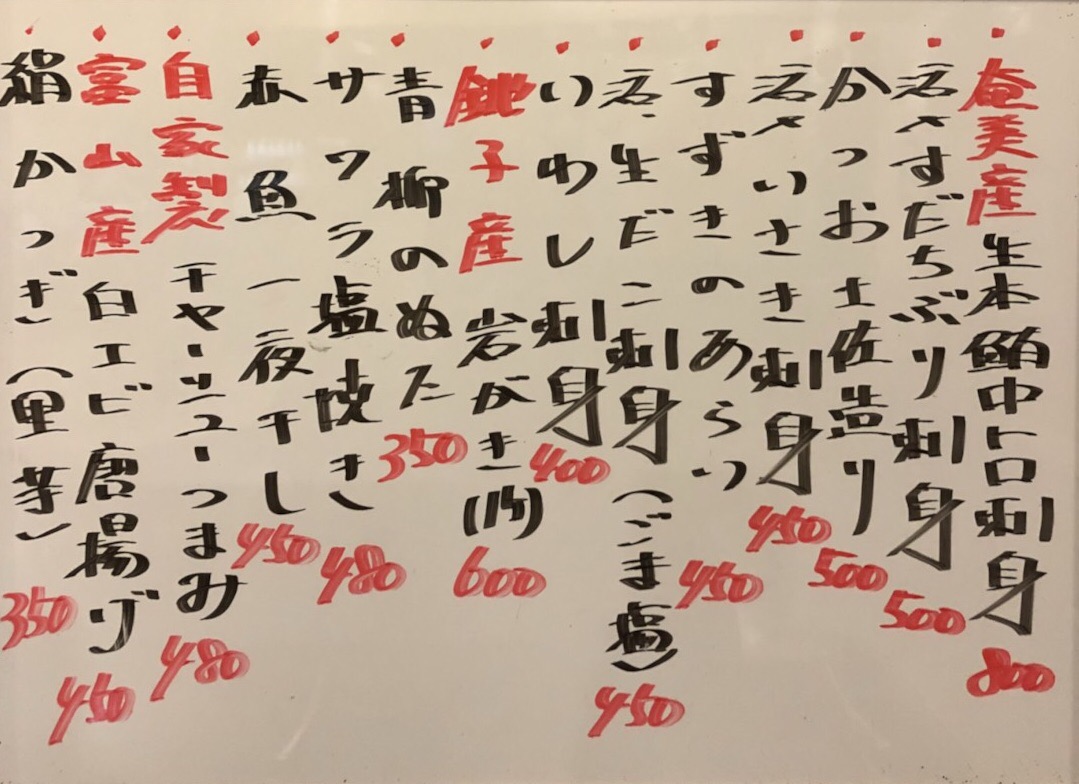 奄美産生本鮪中トロ刺身 800
〆すだちぶり刺身 500
かつお土佐造り 500
〆いさき刺身 450
すずきのあらい 450
生だこ刺身(ごま塩) 450
いわし刺身 400
銚子産岩がき(1ケ) 600
青柳のぬた 350
サワラ塩焼き 480
赤魚一夜干し 450
自家製チャーシューつまみ 480
富山産白エビ唐揚げ 450
絹かつぎ(里芋) 350